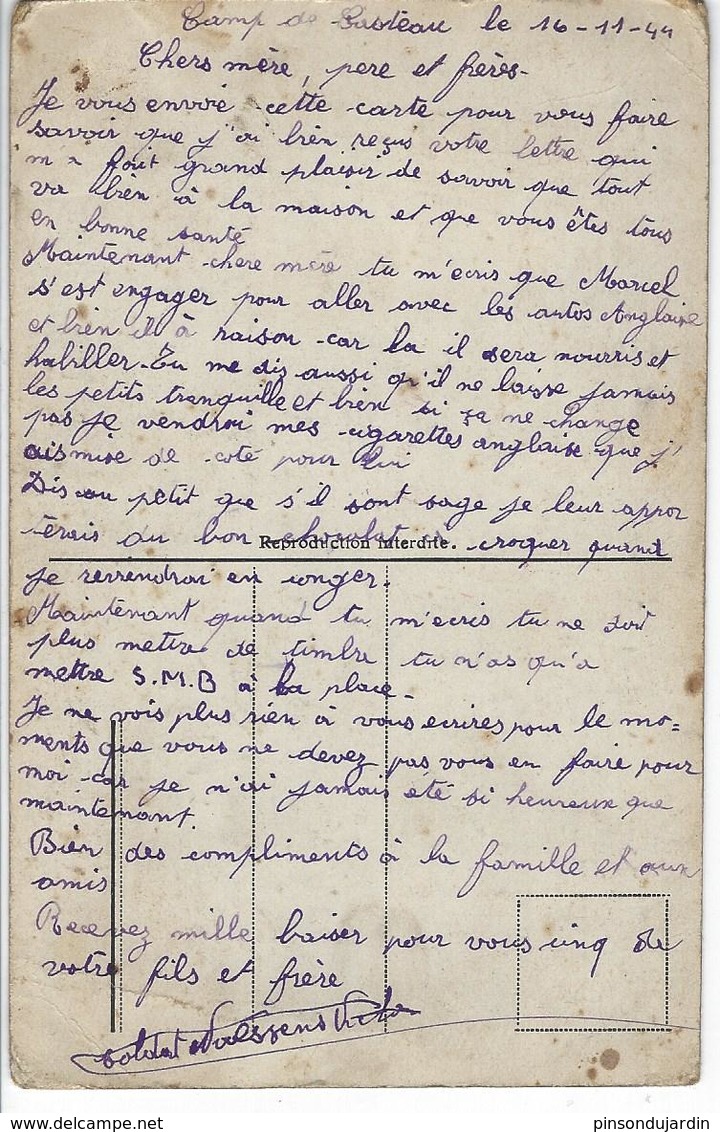 Camp de Casteau le 16-11-44
Chers mère, pere et frères-
Je vous envoie cette carte pour vous faire
savoir que j'ai bien reçus votre lettre qui
m'a fait grand plaisir de savoir que tout
va bien à la maison et que vous êtes tous
en bonne santé
Maintenant chere mère tu m'ecris que Marcel
s'est engager pour aller avec les autos Anglaise
et bien il à raison car la il sera nourris et
habiller. Tu me dis aussi qu'il ne laisse jamais
les petits tranquille et bien si ça ne change
pas je vendrai mes cigarettes anglaise que j'
ais mise de coté pour lui
Dis au petit que s'il sont sage je leur appor
terais du bon chocolat à croquer quand
Reproduction interdite.
je revriendrai en conger.
Maintenant quand tu m'ecris tu ne doit
plus mettre de timbre tu n'as qu'a
mettre S.M.B à la place-
Je ne vois plus rien à vous ecrires pour le mo=
ments que vous ne devez pas vous en faire pour
moi car je n'ai jamais été si heureux que
maintenant.
Bien des compliments à la famille et aux
amis
Recevez mille baiser pour vous cinq de
votre fils et frère
soldat
pinsondujardin